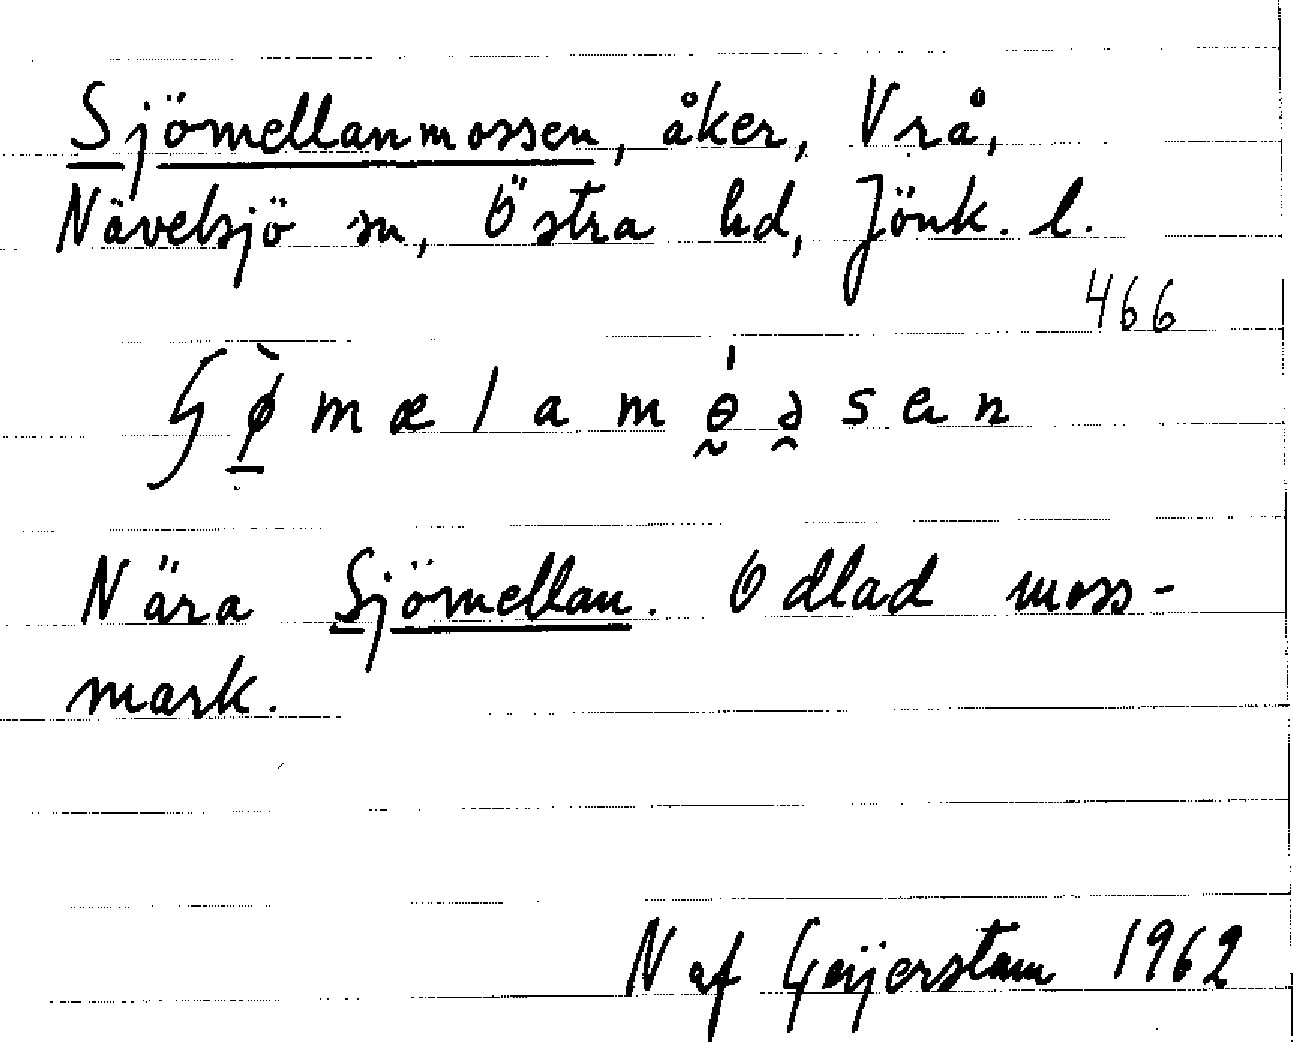 Sjömellanmossen, åker, Vrå,
Nävelsjö sn, Östra hd, Jönk. l.
466
Nära Sjömellan. Odlad moss-
mark.
N af Geijerstam 1962